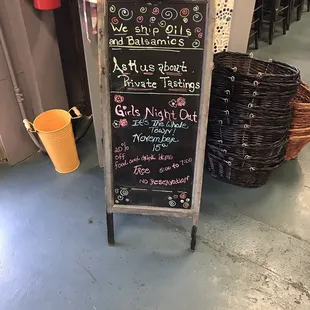 We ship Oils
and Balsamics
Ask us about
Private Tastings
Girls Night Out
It's the Whole
Town!
November
15th
20%
off
Food and drink demo
Free 5:00 to 7:00
No Reservations